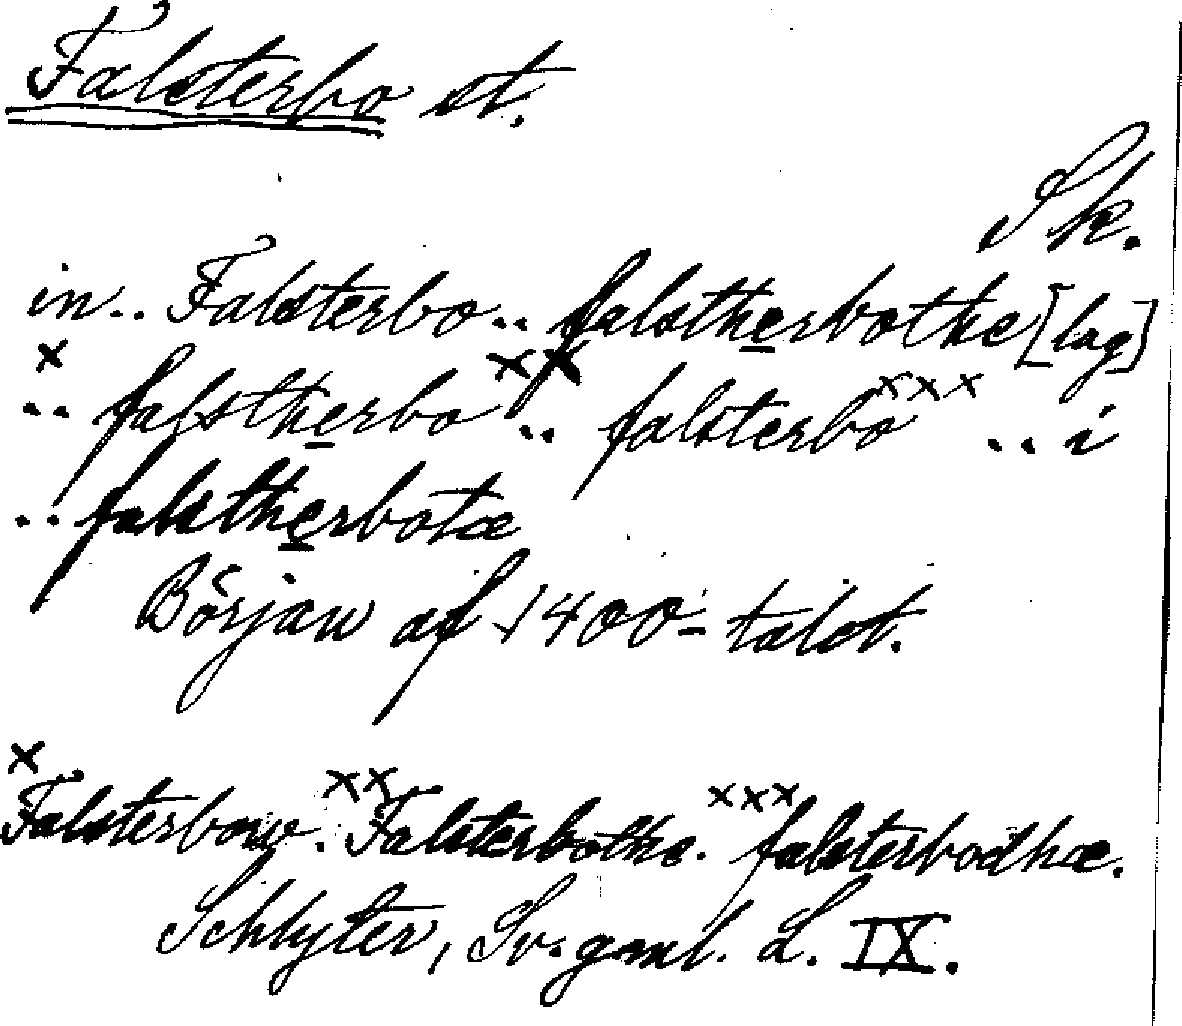 Falsterbo st.
Sk.
in.. Falsterbo.. falstherbothe [lag]
x .. falstherbo xx .. falsterbo xxx .. i
.. falstherbotæ
Början af 1400-talet.
x Falsterbouw. xx Falsterbothe. xxx falsterbodhæ.
Schlyter, Sv. gml. L. IX.